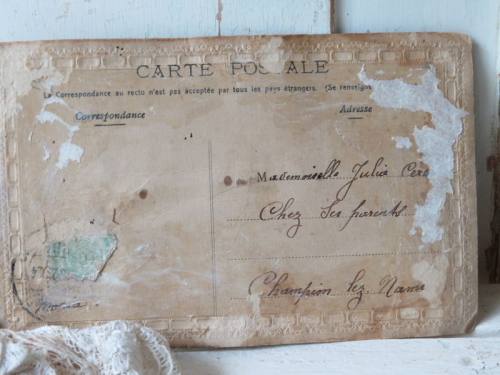 CARTE POSTALE
La Correspondance au recto n'est pas acceptée par tous les pays étrangers. (Se renseigne
Correspondance
Adresse
Mademoiselle Julia
Chez ses parents
Champion lez. Namu